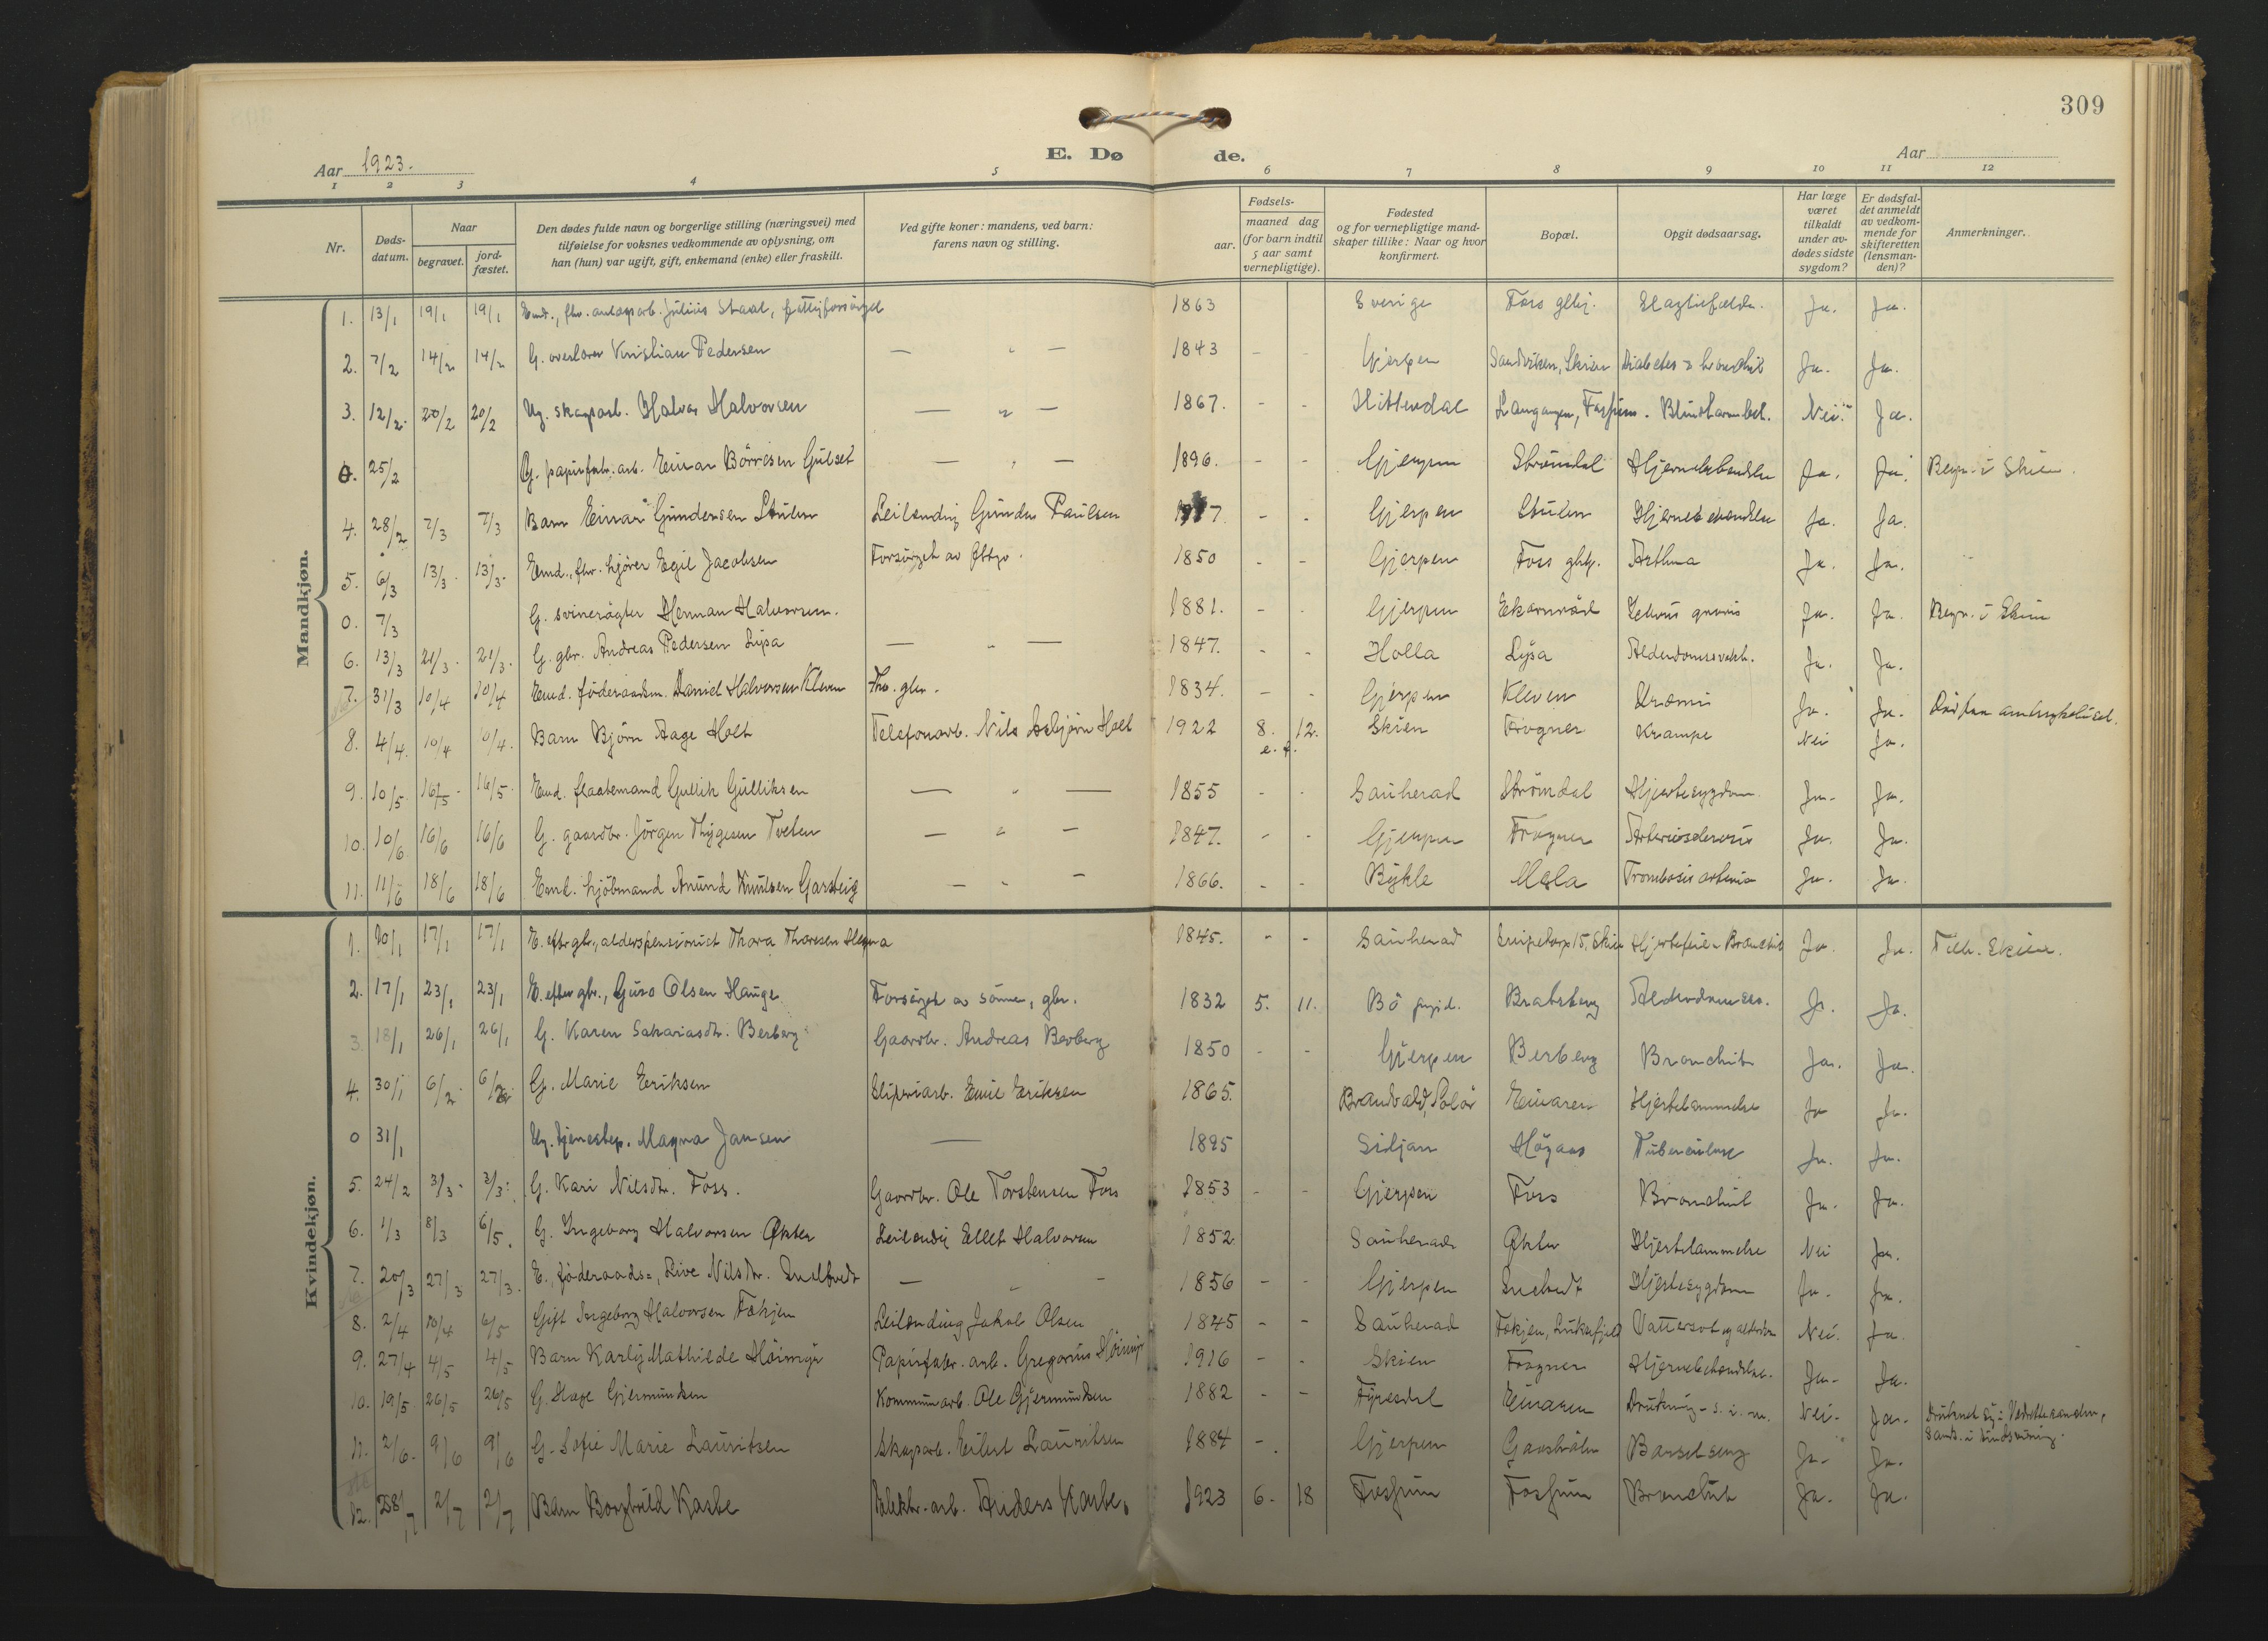 309
Aar 1923.
E. Dø
de.
Aar
1 2 3 4 5 6 7 8 9 10 11 12
Nr.
Døds-
datum.
Naar
begravet.
jord-
fæstet.
Den dødes fulde navn og borgerlige stilling (næringsvei) med
tilføielse for voksnes vedkommende av oplysning, om
han (hun) var ugift, gift, enkemand (enke) eller fraskilt.
Ved gifte koner: mandens, ved barn:
farens navn og stilling.
Fødsels-
aar.
maaned dag
(for barn indtil
5 aar samt
vernepligtige).
Fødested
og for vernepligtige mand-
skaper tillike: Naar og hvor
konfirmert.
Bopæl.
Opgit dødsaarsag.
Har læge
været
tilkaldt
under av-
dødes sidste
sygdom?
Er dødsfal-
det anmeldt
av vedkom-
mende for
skifteretten
(lensman-
den)?
Anmerkninger.
Mandkjøn.
1. 13/1 19/1 19/1 Julius Staal, 1863 Sverige Foss Slagtilfælde. Ja. Ja.
2. 7/2 14/2 14/2 G. overlærer Kristian Pedersen — " — 1843 - - Gjerpen Sandviken, Skien Diabetes Ja. Ja.
3. 12/2. 20/2 20/2 Ug. skogsarb. Halvor Halvorsen — " — 1867. - - Hitterdal Langangen, Fossum. Nei. Ja.
0. 25/2 G. papirfabr. arb. Einar Börresen Gulset — " — 1896. - - Gjerpen Strömdal Hjernebetændelse Ja. Ja. Begr. i Skien.
4. 28/2 7/3 7/3 Barn Einar Gundersen Stulen Leilending Gunder Paulsen - - Gjerpen Stulen Hjernebetændelse Ja. Ja.
5. 6/3 13/3. 13/3. Emd., fhv. kjörer Egil Jacobsen Forsörget av 1850 - - Gjerpen Foss Asthma Ja. Ja.
0. 7/3 G. svinerögter Herman Halvorsen. 1881. - - Gjerpen Ekornröd gravis Ja. Ja. Begr. i Skien
6. 13/3 21/3. 21/3. G. gbr. Andreas Pedersen Lysa — " — 1847. - - Holla Lysa Ja. Ja.
7. 31/3 10/4 10/4 Emd. föderaadsm. Daniel Halvorsen Kleven Fhv. gbr. 1834. - - Gjerpen Kleven Uræmi Ja. Ja.
8. 4/4. 10/4 10/4. Barn Björn Aage Holt Telefonarb. Nils Asbjörn Holt 1922 8. 12. Skien Frogner Krampe Nei Ja.
9. 10/5. 16/5. 16/5. Emd. flaatemand Gullik Gulliksen — " — 1855 - - Sauherad Strömdal Hjertesygdom. Ja. Ja.
10. 10/6 16/6 16/6 G. gaardbr. Jörgen Thygesen Tveten — " — 1847. - - Gjerpen Frogner Arteriosclerosis Ja. Ja.
11. 11/6 18/6 18/6 Emd. kjöbmand Anund Knutsen Garsteig — " — 1866. - - Bykle Mæla Trombosis arteria Ja. Ja.
Kvindekjøn.
1. 10/1 17/1 17/1 E. efter gbr., alderspensionist Thora Thoresen 1845. - - Sauherad Snipetorp 15, Skien Hjertefeil Bronchit Ja. Ja. Tilh. Skien.
2. 17/1 23/1 23/1 E. efter gbr., Guro Olsen Hauge Forsörget av sönner, gbr. 1832 5. 11. Bö Bratsberg Ja. Ja.
3. 18/1 26/1 26/1 G. Karen Sakariasdtr. Berberg Gaardbr. Andreas Berberg 1850 - - Gjerpen Berberg Bronchit Ja. Ja.
4. 30/1 6/2. 6/2. G. Marie Eriksen Sliperiarb. Emil Eriksen 1865. Brandvald, Solör Einaren Hjertelammelse Ja Ja.
0 31/1 Ug. tjenestep. Magna Jansen — 1895 Siljan Högaas Tuberculose Ja. Ja.
5. 24/2 3/3. 3/3. G. Kari Nilsdtr. Foss. Gaardbr. Ole Torstensen Foss 1853 - - Gjerpen Foss Bronchit Ja. Ja.
6. 1/3 8/3 6/5. G. Ingeborg Halvorsen Økter Leilending Ellef Halvorsen 1852 Sauherad Økter Hjertelammelse Nei Ja.
7. 20/3 27/3 27/3. E., föderaads-, Live Nilsdtr. — " - 1856 - - Gjerpen Hjertesygdom Ja. Ja.
8. 2/4 10/4 6/5 Gift Ingeborg Halvorsen Fokjen Leilending Jakob Olsen 1845 - - Sauherad Fokjen, Vattersot og Nei. Ja.
9. 27/4 4/5 4/5 Barn Karly Mathilde Höimyr Papirfabr. arb. Gregorius Höimyr 1916 - - Skien Frogner Hjernebetændelse. Ja. Ja.
10. 19/5 26/5 26/5 G. Hage Gjermundsen Kommunearb. Ole Gjermundsen 1882 - - Fyresdal Einaren Drukning - s. i. m. Nei- Ja. Druknet sig i
sands. i sindsvining.
11. 2/6. 9/6 9/6 G. Sofie Marie Lauritsen Skogsarb. Eilert Lauritsen 1887 - - Gjerpen Gaasholm Barselseng Ja- Ja.
12. 2/7 2/7 Barn Borghild Kasbe Elektr. arb. Anders Kasbe. 1923 6. 18 Fossum Fossum Bronchit Ja. Ja.